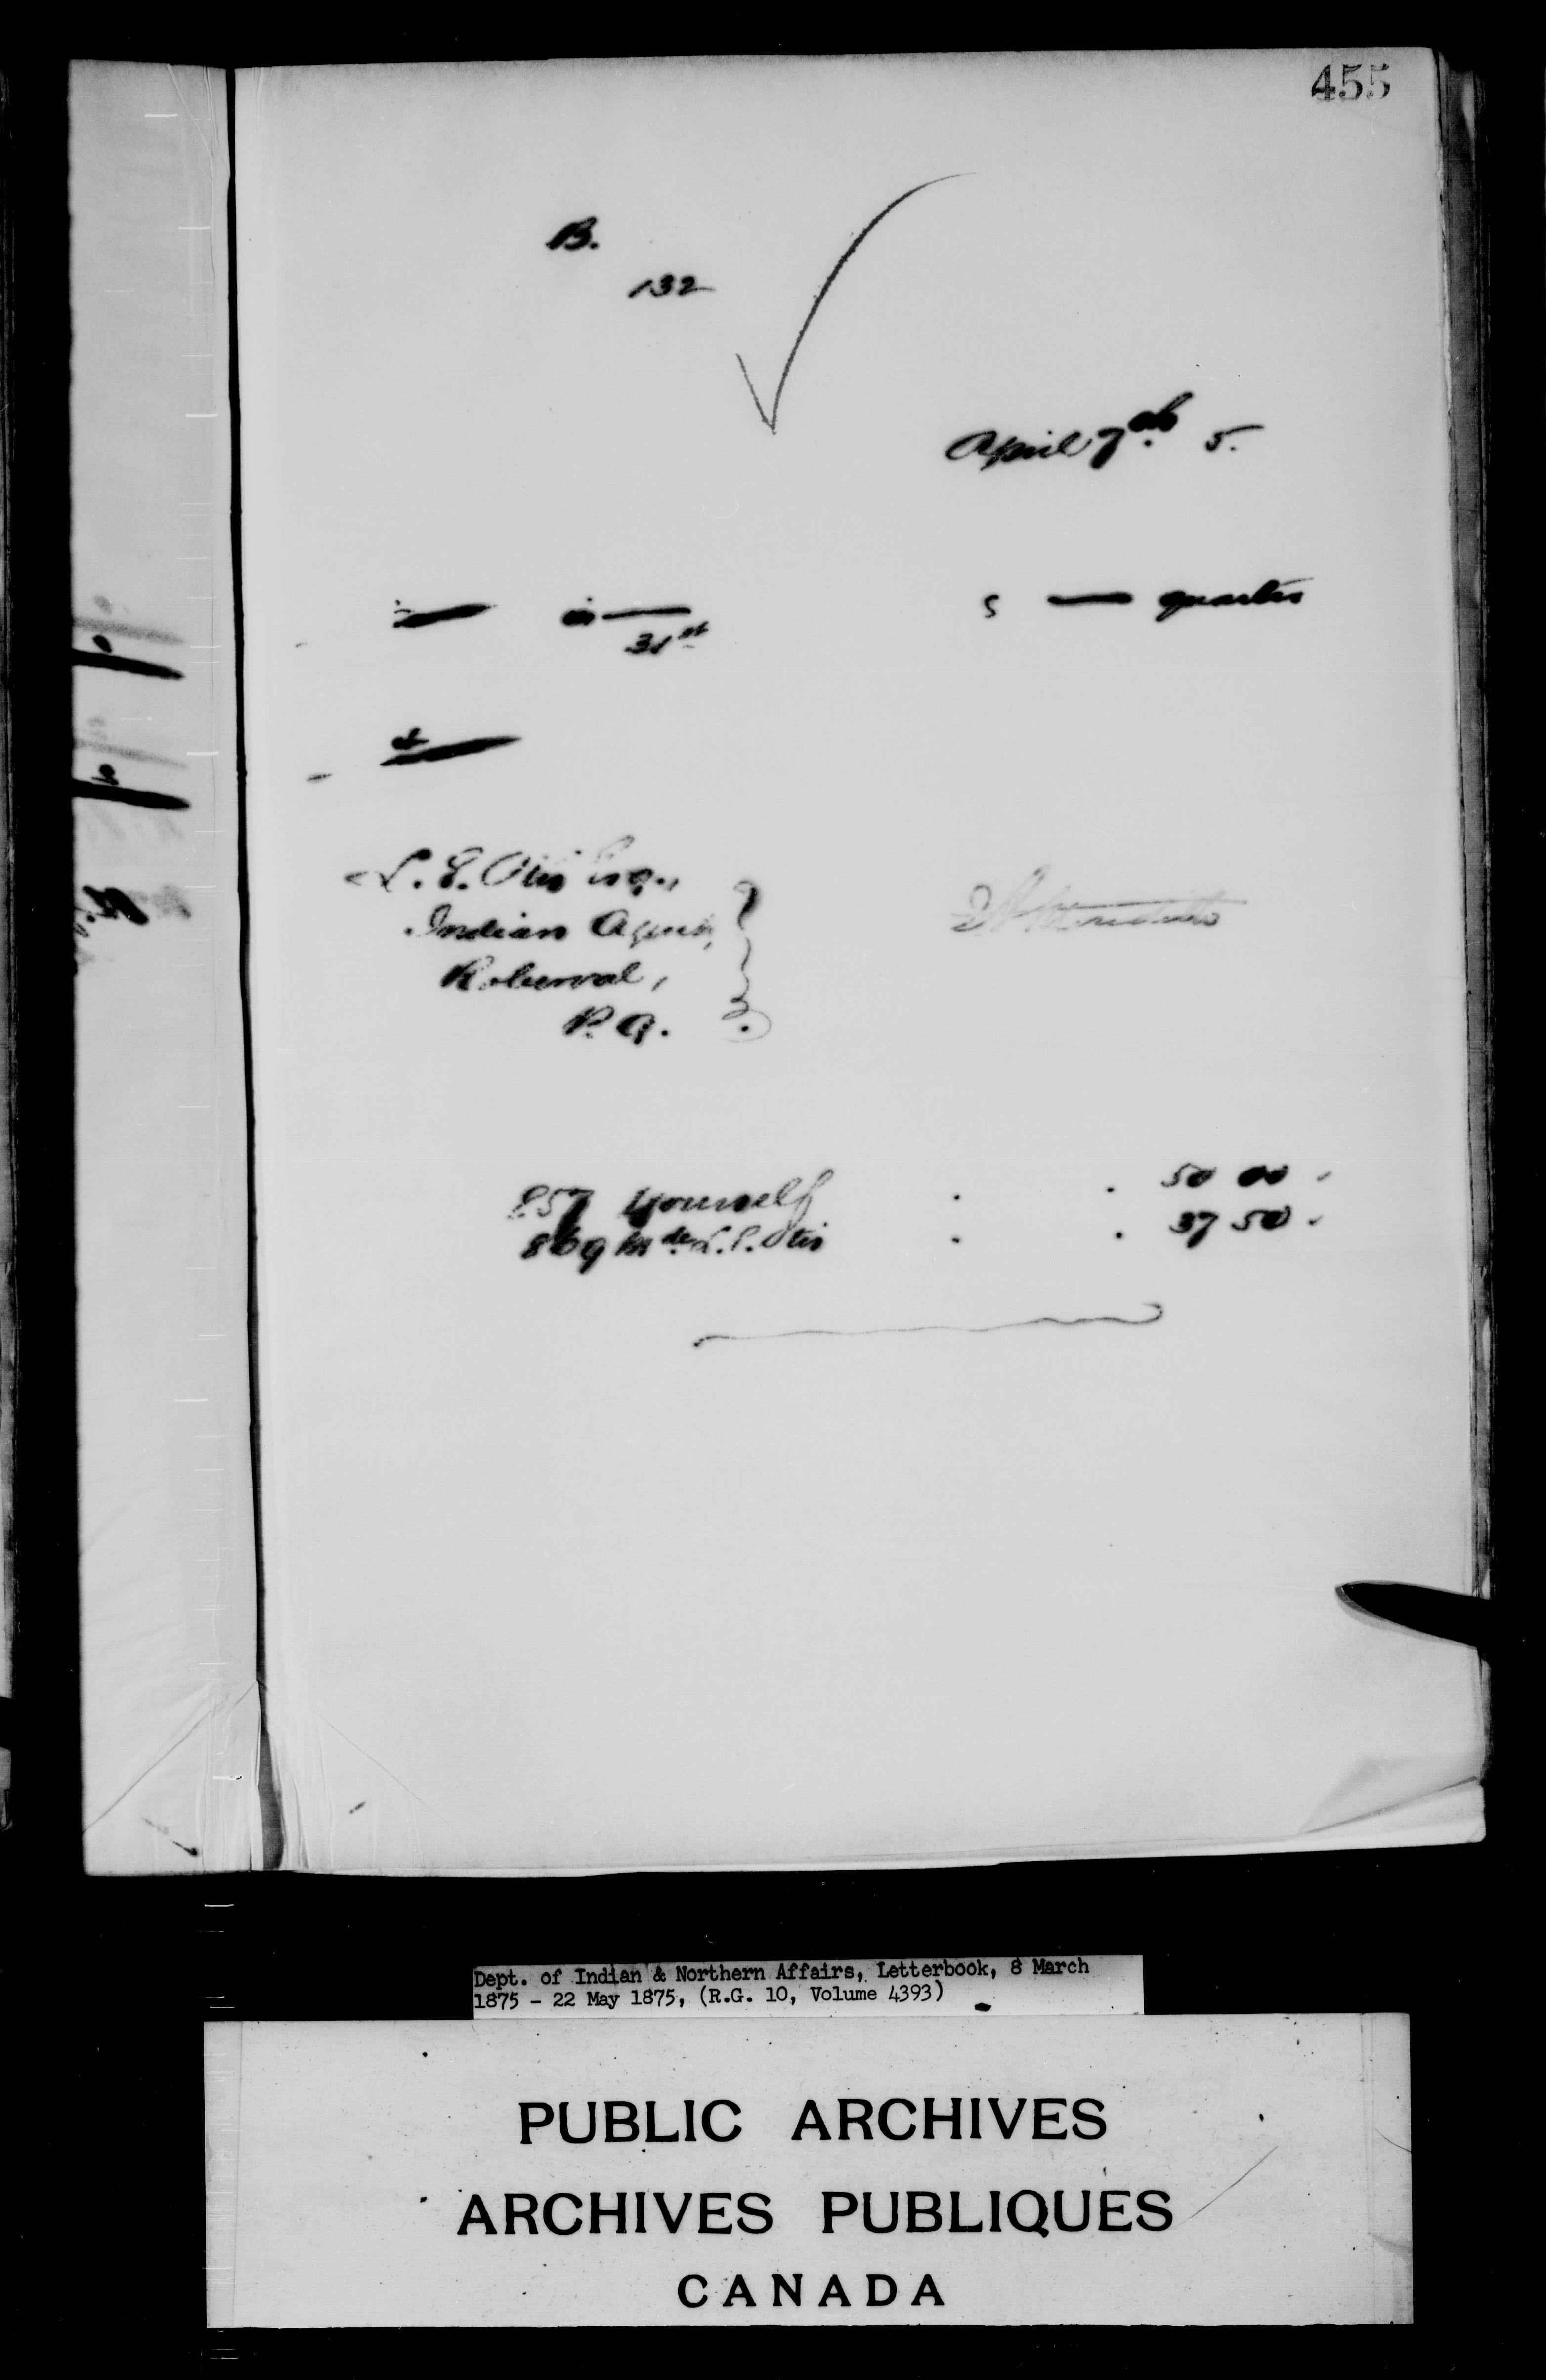 455
B.
132
April 7th 5.
s — quarter
31st
L. E. Otis Esq.,
Indian Agent,
Roberval,
P. Q.
857 Yourself . . 50 00
869 Mde L. E. Otis . . 37 50
Dept. of Indian & Northern Affairs, Letterbook, 8 March
1875 - 22 May 1875, (R.G. 10, Volume 4393)
PUBLIC ARCHIVES
ARCHIVES PUBLIQUES
CANADA